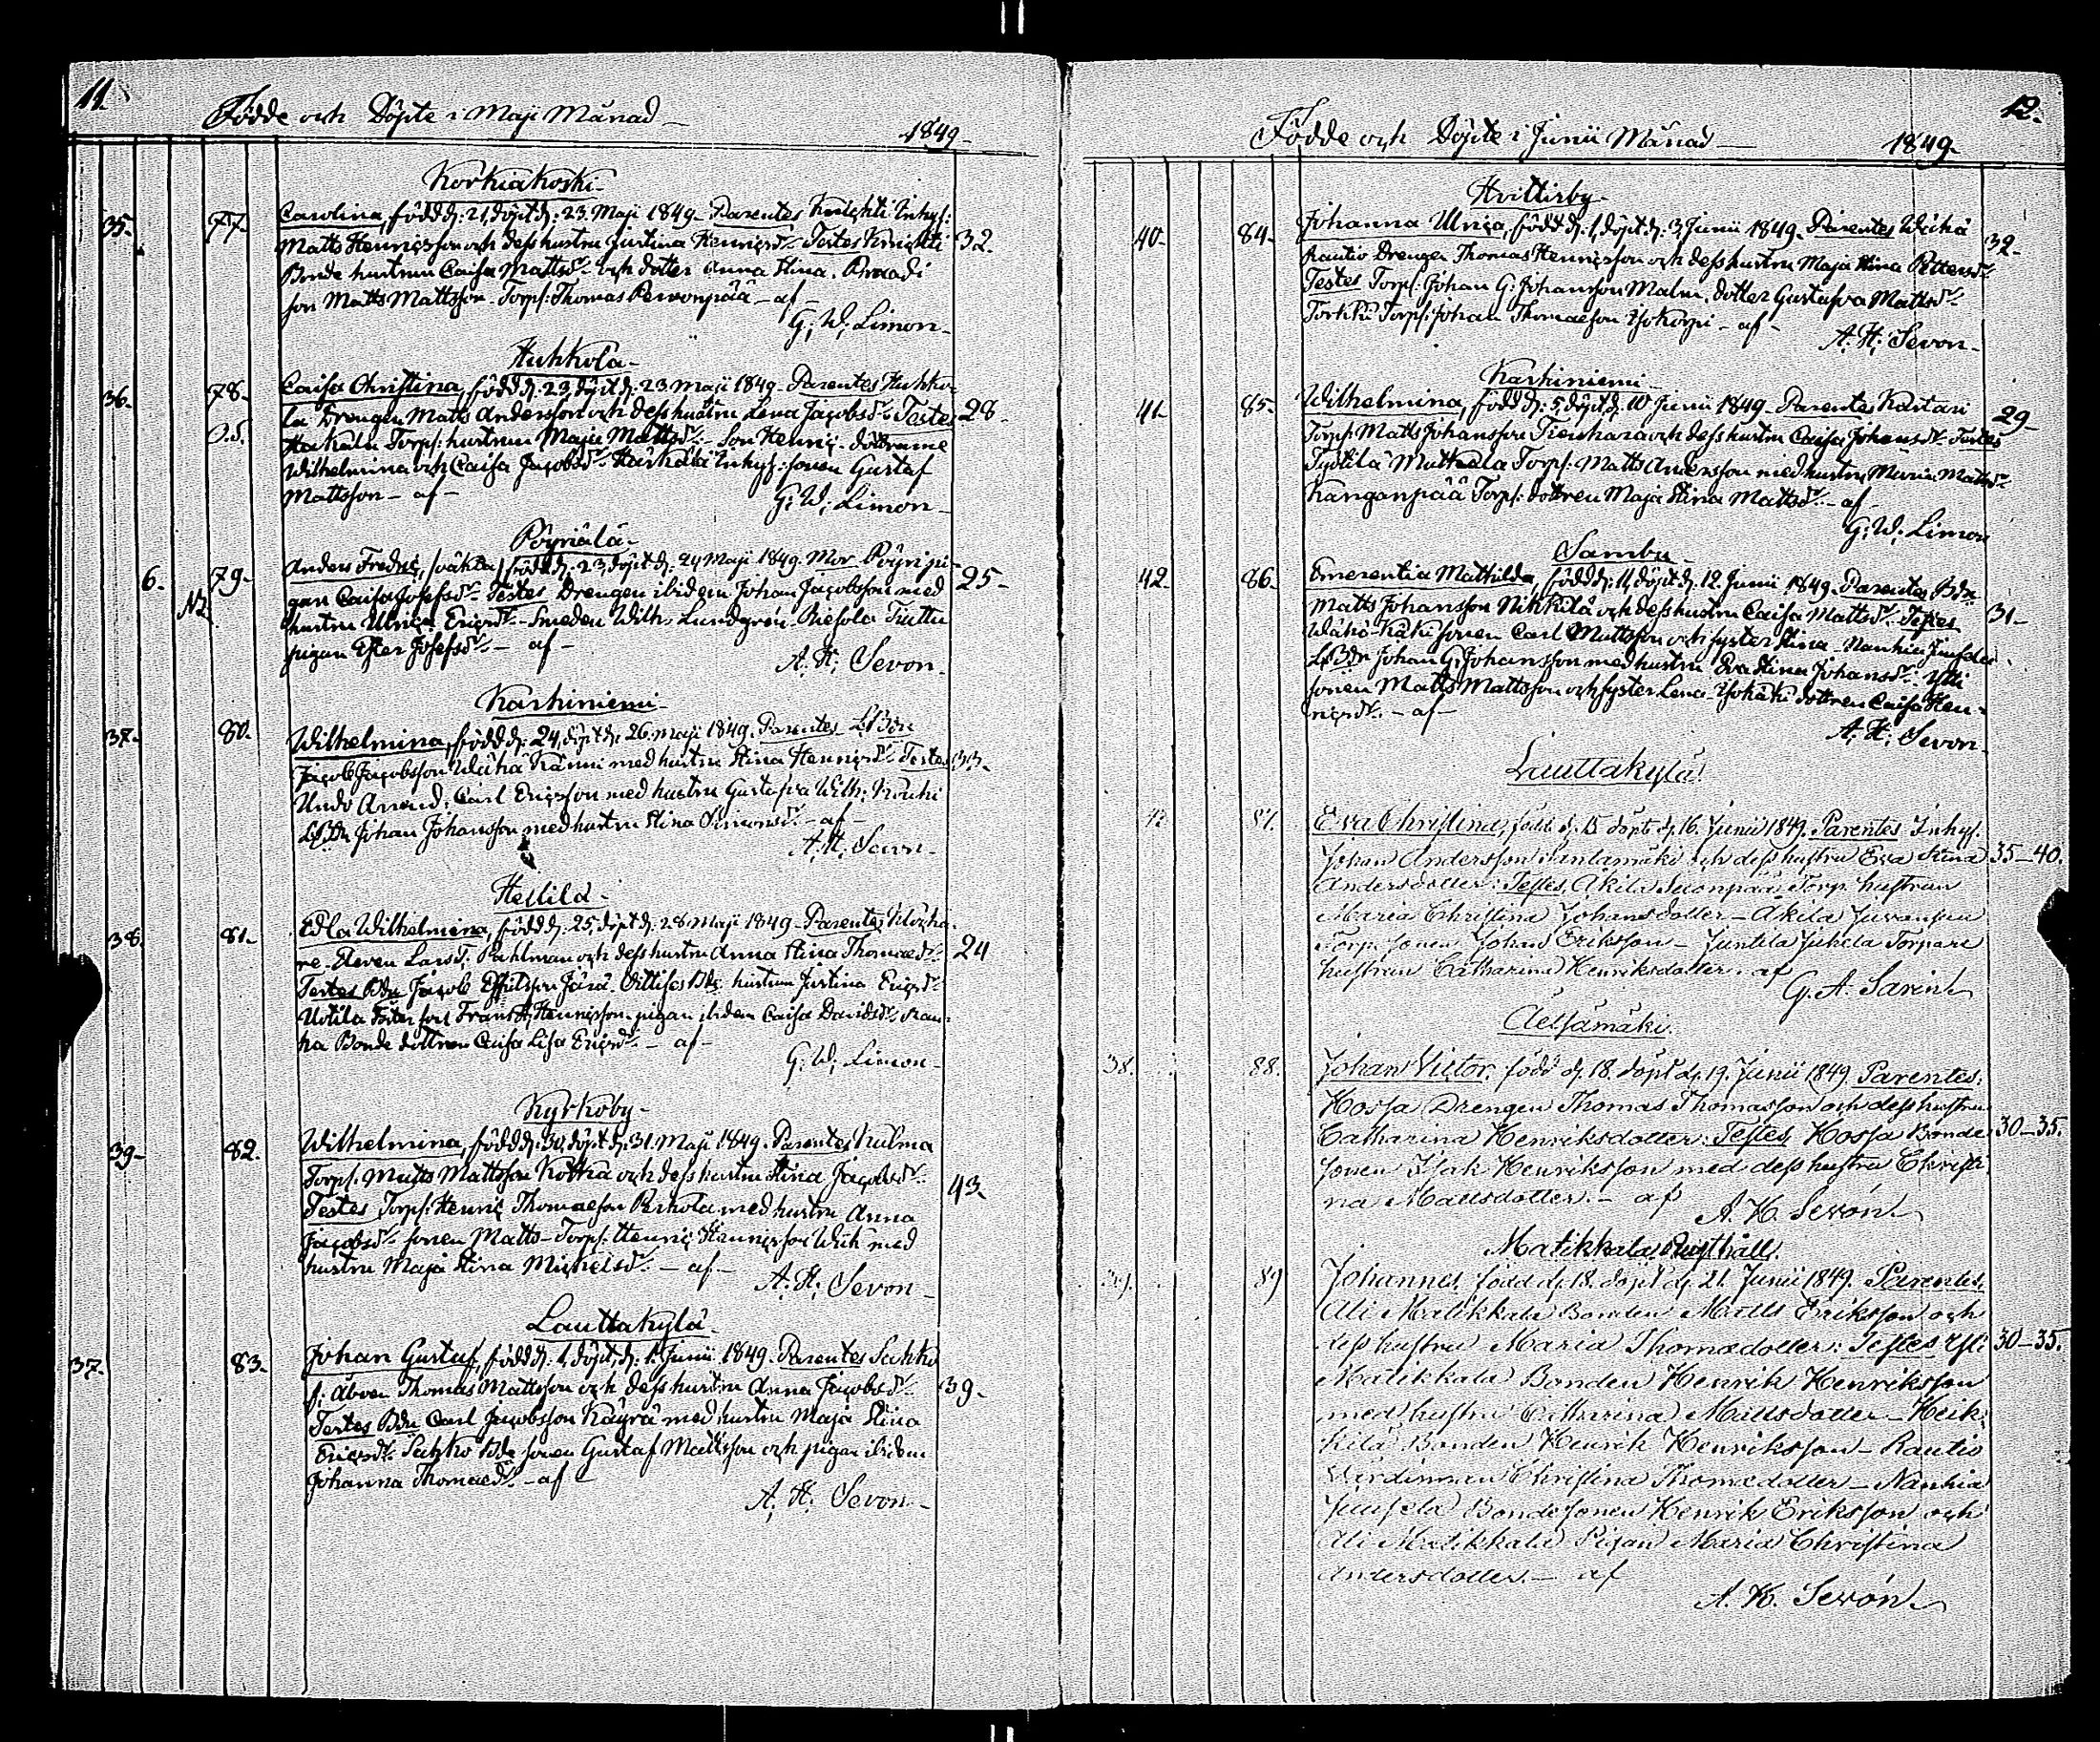 11.
Födde och Döpte i Maji Månad
1849
Korkiakoski
35. 77. Carolina, född d: 21, döpt d: 23 Maji 1849. Parentes Knickti Inhys:
Matts Henricsson och dess hustru Justina Henricsdr. Testes Knickti 32.
Bonde hustrun Caisa Mattsdr. och dotter Anna Stina.
son Matts Mattsson. Torp: Thomas - af -
G: W: Limon
Huhkola
36. 78. Caisa Christina, född d. 23, döpt d. 23 Maji 1849. Parentes Huhko-
la Drengen Matts Andersson och dess hustru Lena Jacobsdr. Testes 28.
Torp: hustrun Maja Mattsdr. Son Henric. döttrarne
Wilhelmina och Caisa Jacobsdr. Inhys: sonen Gustaf
Mattsson - af - G: W: Limon
Pöyriälä
6. 79. Anders Fredric, (oäkta) född d. 23, döpt d. 24 Maji 1849. Mor Pöyri pi- 25.
gan Caisa Josefsdr. Testes Drengen ibidem Johan Jacobsson med
hustru Ulrica Ericsdr. Smeden Wilh. Lundgrén.
pigan Ester Josefsdr. - af -
A. H; Sevon
Karhiniemi
37. 80. Wilhelmina, född d: 24, döpt d: 26 Maji 1849. Parentes LBdn
Jacob Jacobsson Wähä Känni med hustru Stina Henricsdr. Testes 33.
Undo Arrend. Carl Ericsson med hustru Gustafva Wilh: Kouhi
LBdn Johan Johansson med hustru Stina Simonsdr. - af -
A. H; Sevon
Heslilä
38. 81. Edla Wilhelmina, född d: 25, döpt d: 28 Maji 1849. Parentes Klocka-
re Eleven Lars T. Pahlman och dess hustru Anna Stina Thomaedr. 24
Testes Bdn Jacob hustrun Justina Ericsdr.
Uotila Foster son Frans H; Henricsson. pigan ibidem Caisa Davidsdr.
ka Bonde dottren Caisa Lisa Ericsdr. - af -
G: W: Limon
Kyrkoby
39. 82. Wilhelmina, född d: 30, döpt d: 31 Maji 1849. Parentes Kulma
Torp: Matts Mattsson Kottka och dess hustru Stina Jacobsdr. 43.
Testes Torp: Henric Thomaeson med hustru Anna
Jacobsdr. sonen Matts - Torp: Henric Henricsson Wiik med
hustru Maja Stina Michelsdr. - af -
A. H; Sevon
Lauttakylä
37. 83. Johan Gustaf, född d: 1, döpt d: 1 Junii 1849. Parentes Suhko
s: åboen Thomas Mattsson och dess hustru Anna Jacobsdr. 39.
Testes Bdn Carl Jacobsson Käyrä med hustru Maja Stina
Ericsdr. Suhko Bde sonen Gustaf Mattsson och pigan ibidem
Johanna Thomaedr. - af -
A. H; Sevon
12.
Födde och Döpte i Junii Månad
1849
Hvittisby
40. 84. Johanna Ulrica, född d. 1, döpt d: 3 Junii 1849. Parentes Wähä
Rautio Drengen Thomas Henricsson och dess hustru Maja Stina Pettersdr. 32.
Testes Torp: Johan G: Johansson Malm. dotter Gustafva Mattsdr.
Torkki Torp: Johan Thomaeson Isokorpi - af -
A. H; Sevon
Karhiniemi
41. 85. Wilhelmina, född d: 5, döpt d: 10 Junii 1849. Parentes Kartari 29.
Torp: Matts Johansson Tienhara och dess hustru Caisa Johansdr. Testes
Torp: Matts Andersson med hustru Maria Mattsdr.
Kanganpää Torp: dottren Maja Stina Mattsdr. - af -
G: W: Limon
Sambu
42. 86. Emerentia Mathilda, född d: 11, döpt d: 12 Junii 1849. Parentes Bdn
Matts Johansson Nikkilä och dess hustru Caisa Mattsdr. Testes 31.
Wähä-Käki sonen Carl Mattsson och syster Stina. Nanhia
LBdn Johan G: Johansson med hustru Eva Stina Johansdr.
sonen Matts Mattsson och syster Lena. Isokäki dottren Caisa Hen-
ricsdr. - af -
A. H; Sevon
Lauttakylä
87. Eva Christina, född d. 15 döpt d. 16. Junii 1849. Parentes Inhys.
Johan Andersson Santamäki och dess hustru Eva Stina 35-40.
Andersdotter: Testes, Äkilä Suonpää Torp. hustrun
Maria Christina Johansdotter - Äkilä
Torp. sonen Johan Eriksson - Juntila Torpare
hustrun Catharina Henriksdotter. af
G. A. Sarin
Äetsämäki.
38. 88. Johan Victor, född d. 18. döpt d. 19. Junii 1849. Parentes:
Hossa Drengen Thomas Thomasson och dess hustru
Catharina Henriksdotter: Testes Hossa Bonde 30-35.
sonen Isak Henriksson med dess hustru Christi-
na Mattsdotter. - af
A. H. Sevón
Matikkala Rusthåll.
39. 89 Johannes, född d. 18. döpt d. 21. Junii 1849. Parentes:
Ali Matikkala Bonden Matts Eriksson och
dess hustru Maria Thomædotter: Testes Ysli 30-35.
Matikkala Bonden Henrik Henriksson
med hustru Catharina Mattsdotter - Heik-
kilä Bonden Henrik Henriksson - Rautio
Värdinnan Christina Thomædotter - Nanhia
Bondesonen Henrik Eriksson och
Ali Matikkala Pigan Maria Christina
Andersdotter. - af
A. H. Sevón